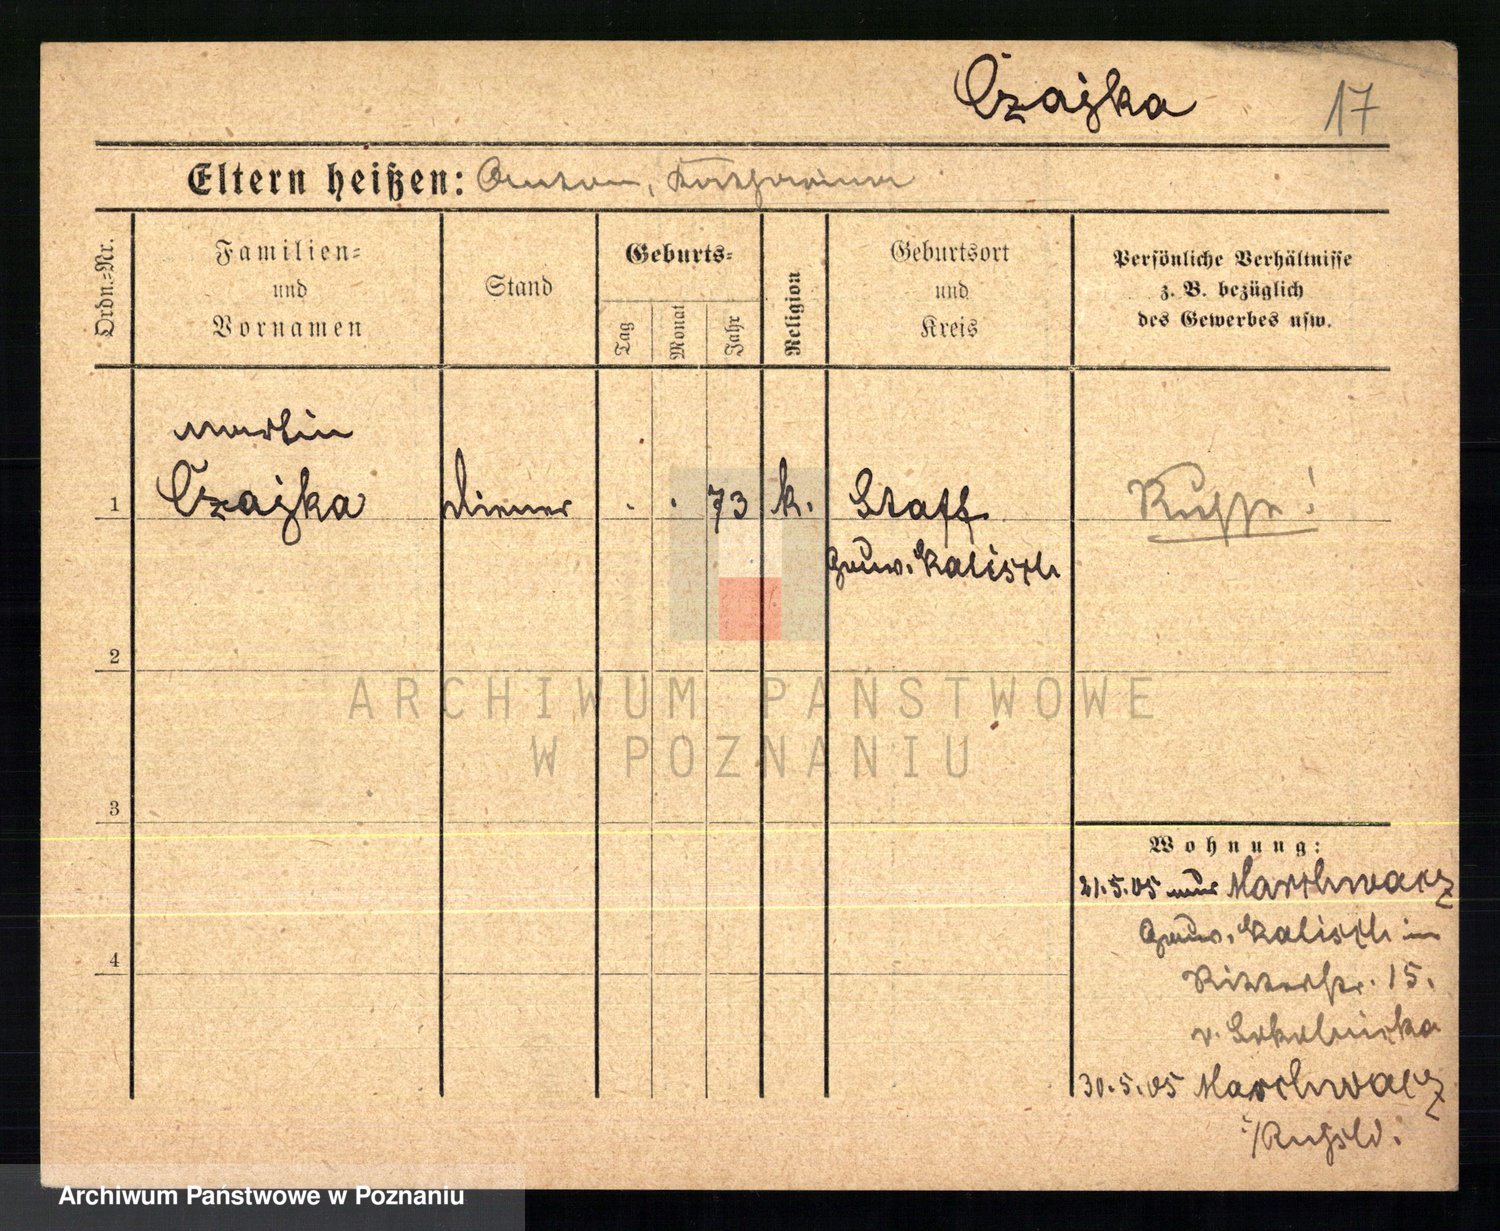 Czajka
17
Eltern heißen: Anton, Katharina
Ordn.-Nr.
Familien- und Vornamen
Stand
Geburts-
Tag
Monat
Jahr
Religion
Geburtsort und Kreis
Persönliche Verhältnisse
z. B. bezüglich
des Gewerbes usw.
Martin
1 Czajka Diener . . 73 k. Staff Russe!
Gouv. Kalisch
2
ARCHIWUM PAŃSTWOWE
W POZNANIU
3
Wohnung:
21.5.05 aus Marchwacz
Gouv. Kalisch in
Ritterstr. 15.
v. Sokolnicka
4
30.5.05 Marchwacz
i/Rußld.
Archiwum Państwowe w Poznaniu